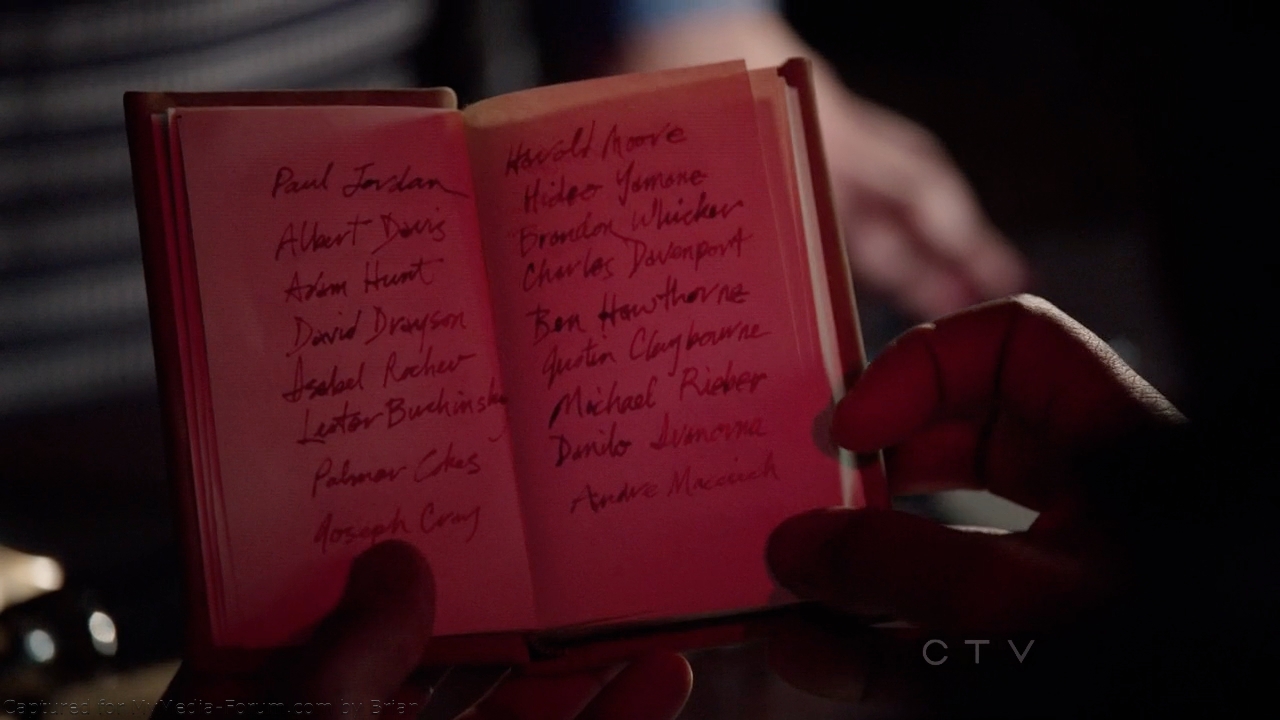 Paul Jordan
Albert Davis
Adam Hunt
David Drayson
Isabel Rochev
Lester Buchinsky
Palmer Cokes
Joseph Cray
Harold Moore
Hideo Yamane
Brandon Whicker
Charles Davenport
Ben Hawthorne
Justin Claybourne
Michael Rieber
Danilo Ivanovna
Andre
CTV
Captured for MyMedia-Forum.com by Brian